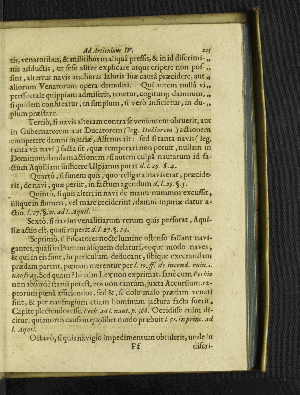 Ad Articulum IV. 225
tis, venatoribus, & militibus in aliqua presse, & in id discrimi-
nis adductis, ut sese aliter explicare atque eripere non pos-
sint, alterius navis anchoras salutis suæ causâ præcidere, aut
aliorum Venatorum opera demoliri. Qui autem nullâ vi
pressus tale quippiam admiserit, tenetur, cogitur; damnum,
si quidem confiteatur, in simplum, si verò inficietur, in du-
plum præstare.
Tertiò, si navis alteram contra se venientem obruerit, aut
in Gubernatorem aut Ducatorem (leg. Ductorem) actionem
competere damni injuriæ, Alfenus ait: sed si tanta vi (leg.
tanta vis navi) facta sit, quæ temperari non potuit, nullam in
Dominum dandam actionem: si autem culpâ nautarum id fa-
ctum Aquiliam sufficere Ulpianus putat d. l. 29. §. 4.
Quartò, si funem quis, quo religata navis erat, præcide-
rit, de navi, quæ periit, in factum agendum d. l. 29. §. 5.
Quintò, si quis alteri in navi de manu nummos excussit,
iique in flumen, vel mare ceciderint, damni injuriæ datur a-
ctio. l. 27. §. 21. ad l. Aquil.
Sexto, si navis venalitiarum rerum quis perforat, Aqui-
liæ actio est, quasi ruperit d. l. 27. §. 24.
Septimò, si Piscatores nocte lumine ostenso fallant navi-
gantes, quasi in Portum aliquem delaturi, eoque modo naves,
& qui in eis sunt, in periculum deducant, sibique execrandam
prædam parent, pœnam merentur per l. 10. ff. de incend. ruin.
naufrag. Sed quam? Etiam Lex non exprimat,
pœna afficiendos, sed &, si dolo malo prædam navali
sint, & per naufragium etiam hominum jactura facta fuerit,
Capite plectendos esse. Occidisse enim di-
citur, qui mortis causam quolibet modo præbuit l. 15. in princ. ad
l. Aquil.
Octavò, si quis navigio impedimentum obtulerit, unde in
Ff discri-